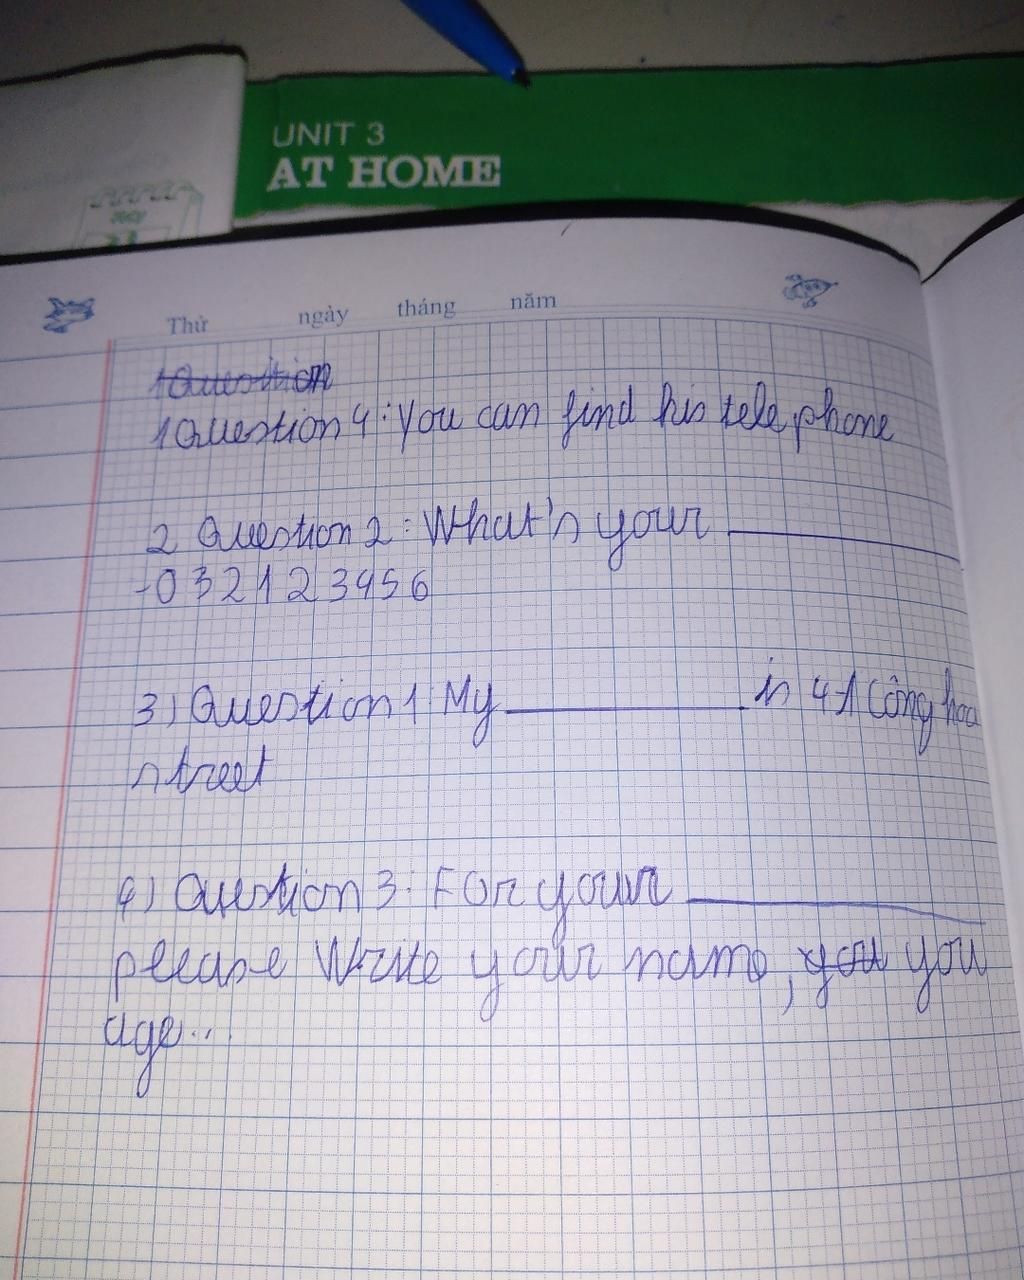 UNIT 3
AT HOME
Thứ ngày tháng năm
1 Question
1 Question 4: you can find his telephone
2 Question 2: What's your ________
-0321 23456
3) Question 1 My ________ is 41 Cộng hoa
street
4) Question 3: For your ________
please Write your name, you you
age...